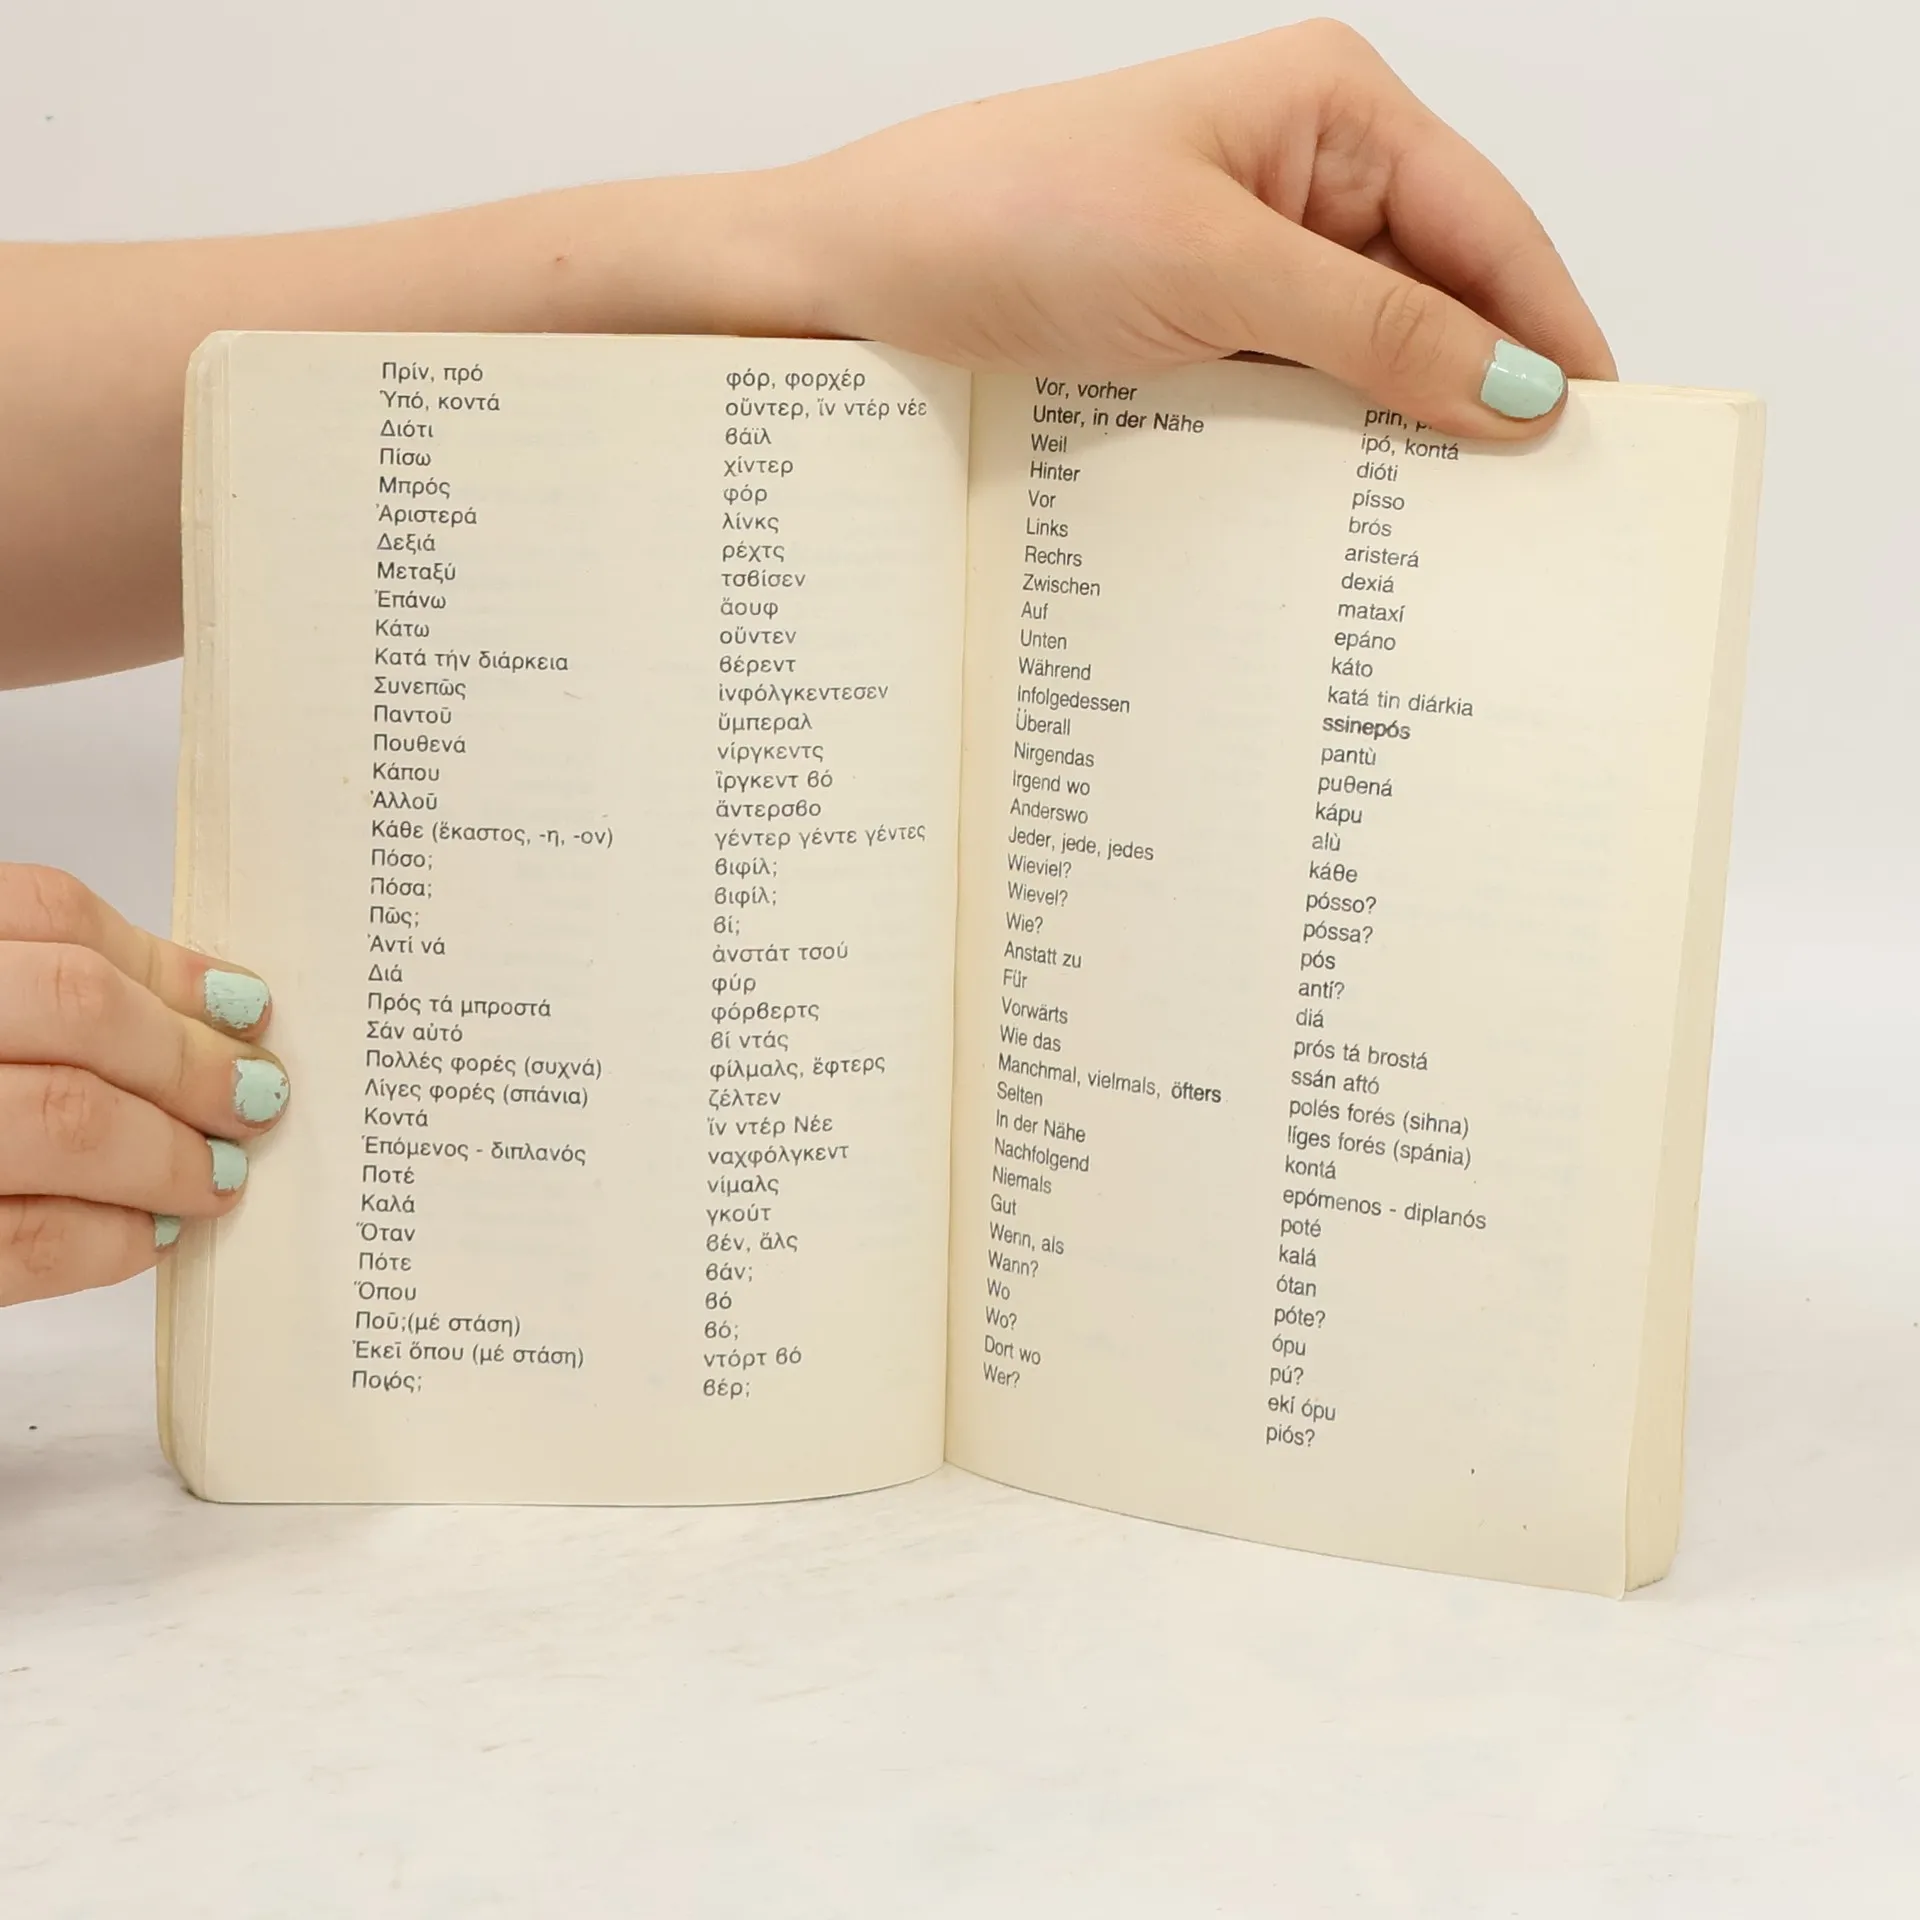 Πρίν, πρό
Ὑπό, κοντά
Διότι
Πίσω
Μπρός
Ἀριστερά
Δεξιά
Μεταξύ
Ἐπάνω
Κάτω
Κατά τήν διάρκεια
Συνεπῶς
Παντοῦ
Πουθενά
Κάπου
Ἀλλοῦ
Κάθε (ἕκαστος, -η, -ον)
Πόσο;
Πόσα;
Πῶς;
Ἀντί νά
Διά
Πρός τά μπροστά
Σάν αὐτό
Πολλές φορές (συχνά)
Λίγες φορές (σπάνια)
Κοντά
Ἑπόμενος - διπλανός
Ποτέ
Καλά
Ὅταν
Πότε
Ὅπου
Ποῦ;(μέ στάση)
Ἐκεῖ ὅπου (μέ στάση)
Ποιός;
φόρ, φορχέρ
οὔντερ, ἵν ντέρ νέε
βάϊλ
χίντερ
φόρ
λίνκς
ρέχτς
τσβίσεν
ἄουφ
οὔντεν
βέρεντ
ἰνφόλγκεντεσεν
ὔμπεραλ
νίργκεντς
ἴργκεντ βό
ἄντερσβο
γέντερ γέντε γέντες
βιφίλ;
βιφίλ;
βί;
ἀνστάτ τσού
φύρ
φόρβερτς
βί ντάς
φίλμαλς, ἔφτερς
ζέλτεν
ἵν ντέρ Νέε
ναχφόλγκεντ
νίμαλς
γκούτ
βέν, ἄλς
βάν;
βό
βό;
ντόρτ βό
βέρ;
Vor, vorher
Unter, in der Nähe
Weil
Hinter
Vor
Links
Rechrs
Zwischen
Auf
Unten
Während
Infolgedessen
Überall
Nirgendas
Irgend wo
Anderswo
Jeder, jede, jedes
Wieviel?
Wievel?
Wie?
Anstatt zu
Für
Vorwärts
Wie das
Manchmal, vielmals, öfters
Selten
In der Nähe
Nachfolgend
Niemals
Gut
Wenn, als
Wann?
Wo
Wo?
Dort wo
Wer?
prin,
ipó, kontá
dióti
písso
brós
aristerá
dexiá
mataxí
epáno
káto
katá tin diárkia
ssinepós
pantù
puθená
kápu
alù
káθe
pósso?
póssa?
pós
antí?
diá
prós tá brostá
ssán aftó
polés forés (sihna)
líges forés (spánia)
kontá
epómenos - diplanós
poté
kalá
ótan
póte?
ópu
pú?
ekí ópu
piós?